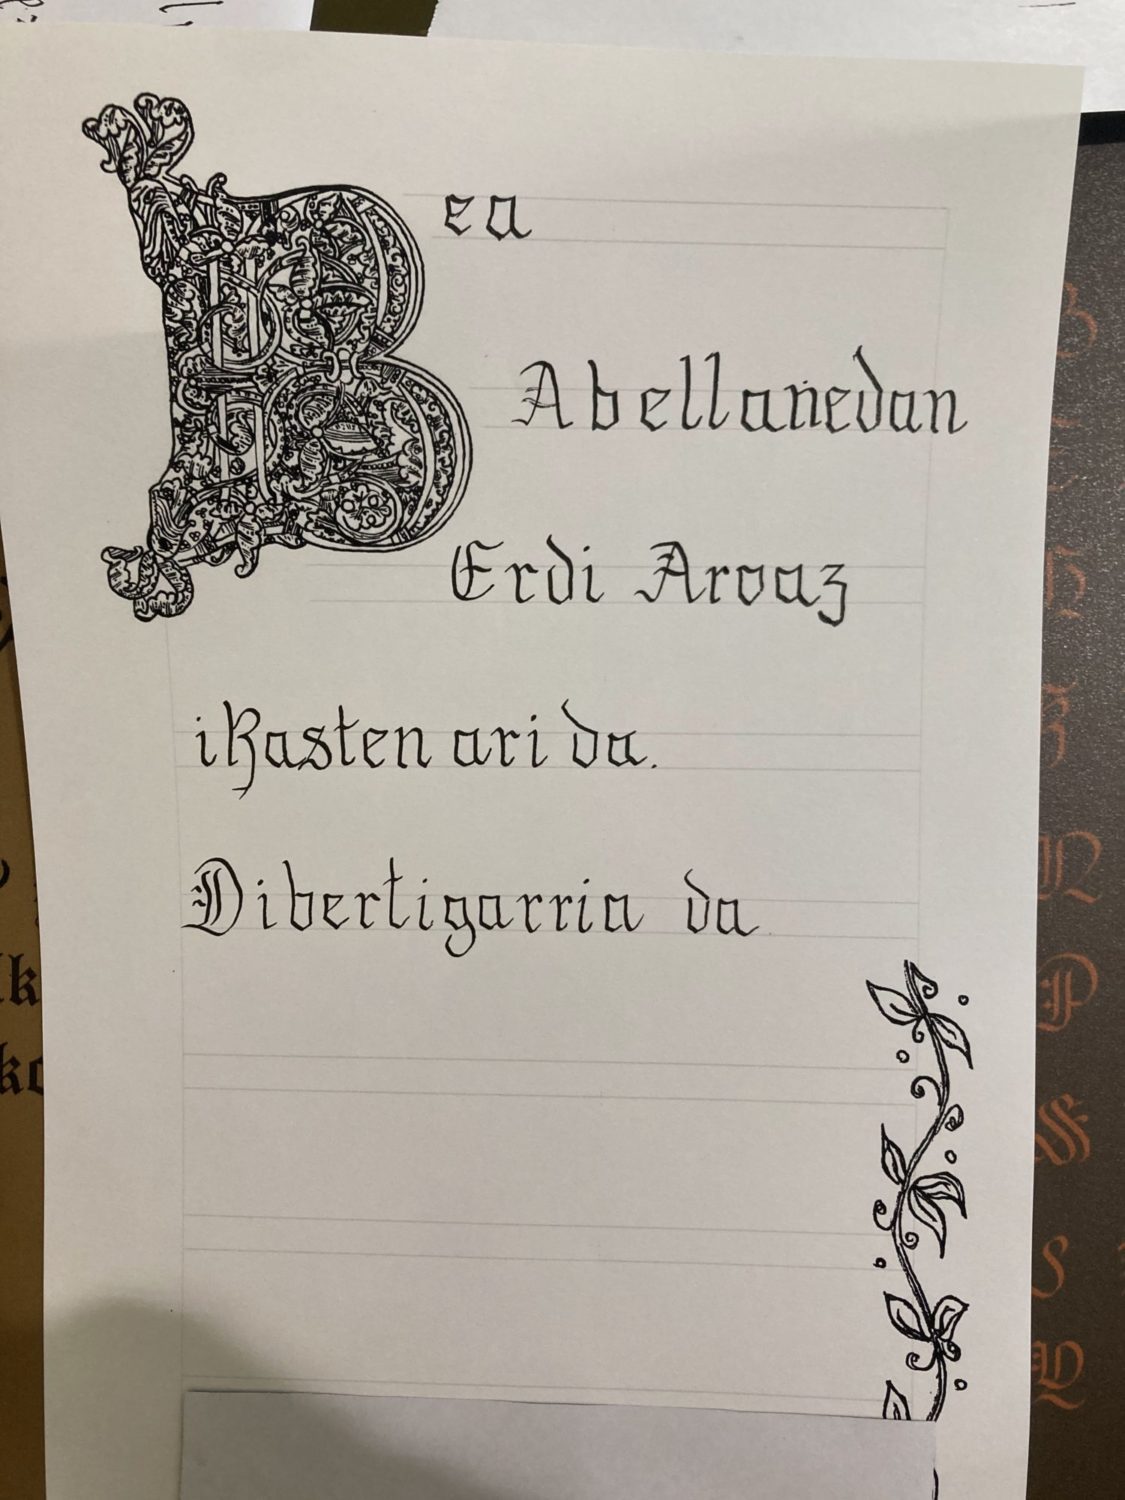 Bea
Abellanedan
Erdi Aroaz
ikasten ari da.
Dibertigarria da